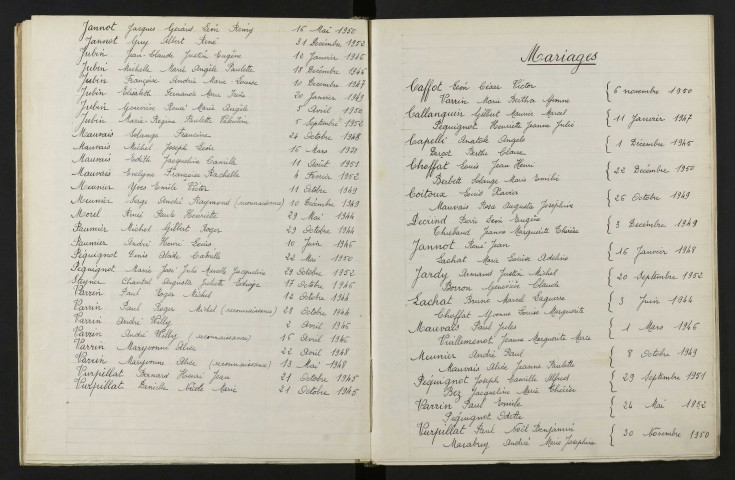 Jannot Jacques Gérard Léon Rémy 16 Mai 1950
Jannot Guy Albert René 31 Décembre 1952
Jubin Jean-Claude Justin Eugène 12 Janvier 1946
Jubin Michelle Marie Angèle Paulette 18 Décembre 1946
Jubin Françoise Andrée Marie Louise 10 Décembre 1947
Jubin Elisabeth Fernande Marie 20 Janvier 1949
Jubin Geneviève Renée Marie Angèle 5 Avril 1950
Jubin Marie-Régine Paulette 5 Septembre 1952
Mauvais Solange Francine 24 Octobre 1948
Mauvais Michel Joseph Léon 16 Mars 1921
Mauvais Edith Jacqueline Camille 11 Août 1951
Mauvais Evelyne Françoise Rachelle 4 Février 1952
Meunier Yves Emile Victor 11 Octobre 1949
Meunier Serge André Raymond (reconnaissance) 10 Décembre 1949
Morel Renée Paule Henriette 29 Mai 1944
Paumier Michel Gilbert Roger 29 Octobre 1944
Paumier André Henri Louis 10 Juin 1946
Péquignot Denis Alcide Camille 22 Mai 1950
Péquignot Marie José Julie Mireille Jacqueline 29 Octobre 1952
Steyner Chantal Augusta Juliette 17 Octobre 1946
Varrin Paul Roger Michel 12 Octobre 1944
Varrin Paul Roger Michel (reconnaissance) 28 Octobre 1944
Varrin André Willy 2 Avril 1946
Varrin André Willy (reconnaissance) 16 Avril 1946
Varrin Maryvonne Alice 22 Avril 1948
Varrin Maryvonne Alice (reconnaissance) 13 Mai 1948
Vurpillat Bernard Henri Jean 21 Octobre 1945
Vurpillat Danielle Nicole Marie 21 Octobre 1945
Mariages
Caffot Léon César Victor { 6 novembre 1950
Varrin Marie Bertha Yvonne
Callanquin Gilbert Maurice Marcel { 11 Janvier 1947
Péquignot Henriette Jeanne Julie
Capelli Anatole Angelo { 1 Décembre 1945
Berthe Claire
Choffat Louis Jean Henri { 22 Décembre 1950
Solange Marie Emilie
Coitoux Louis Xavier { 26 Octobre 1949
Mauvais Rose Augusta Joséphine
Pierre Léon Eugène { 3 Décembre 1949
Jeanne Marguerite Thérèse
Jannot René Jean { 16 Janvier 1948
Sachat Marie Louise Adeline
Jardy Armand Justin Michel { 20 Septembre 1952
Geneviève Claude
Sachat Bruno Marcel { 3 Juin 1944
Choffat Yvonne Louise Marguerite
Mauvais Paul Jules { 1 Mars 1946
Vuillemenot Jeanne Marguerite Marie
Meunier André Paul { 8 Octobre 1949
Mauvais Alice Jeanne Paulette
Péquignot Joseph Camille Alfred { 29 Septembre 1951
Bez Jacqueline Marie Thérèse
Varrin Paul Emile { 24 Mai 1952
Péquignot Odette
Vurpillat Paul Noël Benjamin { 30 Novembre 1950
Marabuy Andrée Marie Joséphine